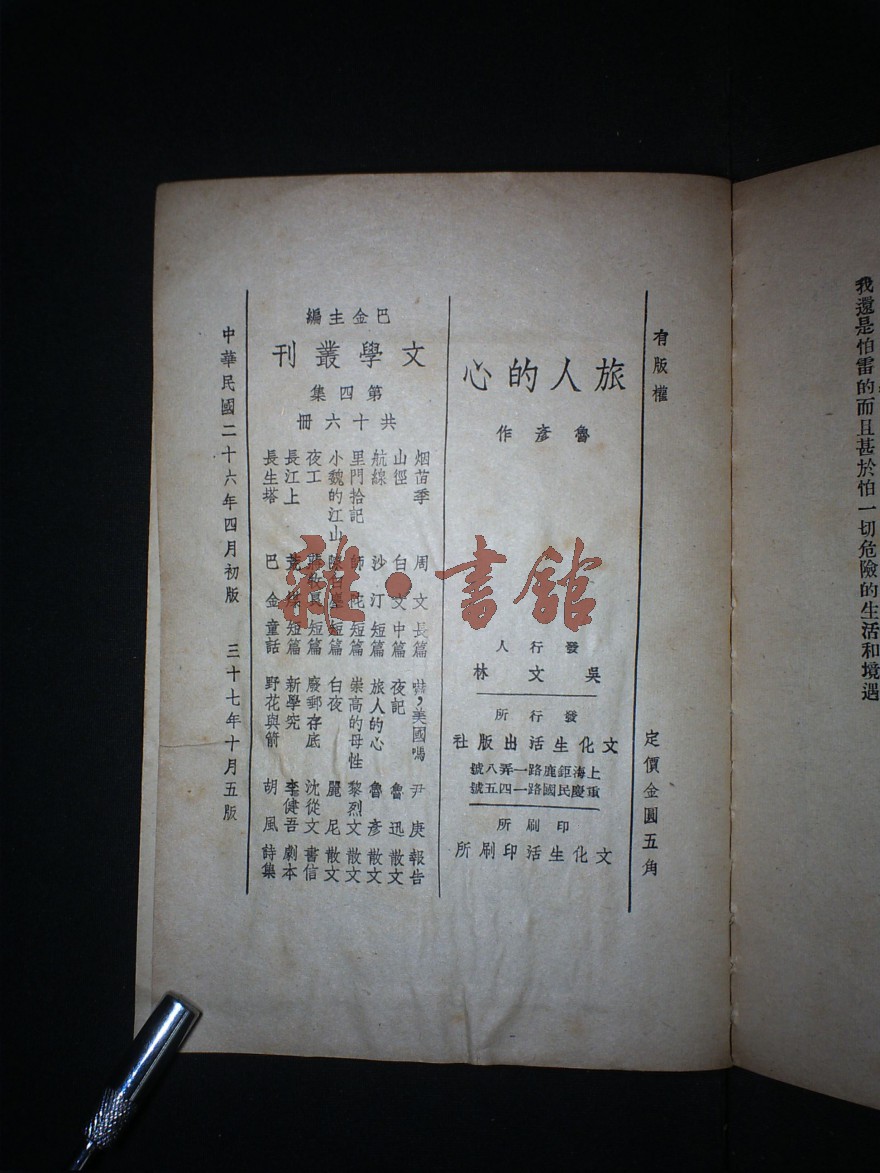 有版權
定價金圓五角
旅人的心
魯彥作
發行人
吳文林
發行所
文化生活出版社
上海鉅鹿路一弄八號
重慶民國路一四五號
印刷所
文化生活印刷所
巴金主編
文學叢刊
第四集
共十六冊
烟苗季 周文 長篇
山徑 白文 中篇
航線 沙汀 短篇
里門拾記 師陀 短篇
小魏的江山 陳白塵 短篇
夜工 蔣牧良 短篇
長江上 荒煤 短篇
長生塔 巴金 童話
嚇，美國嗎 尹庚 報告
夜記 魯迅 散文
旅人的心 魯彥 散文
崇高的母性 黎烈文 散文
白夜 麗尼 散文
廢郵存底 沈從文 書信
新學究 李健吾 劇本
野花與箭 胡風 詩集
中華民國二十六年四月初版 三十七年十月五版
我還是怕雷的而且甚於怕一切危險的生活和境遇
雜·書館